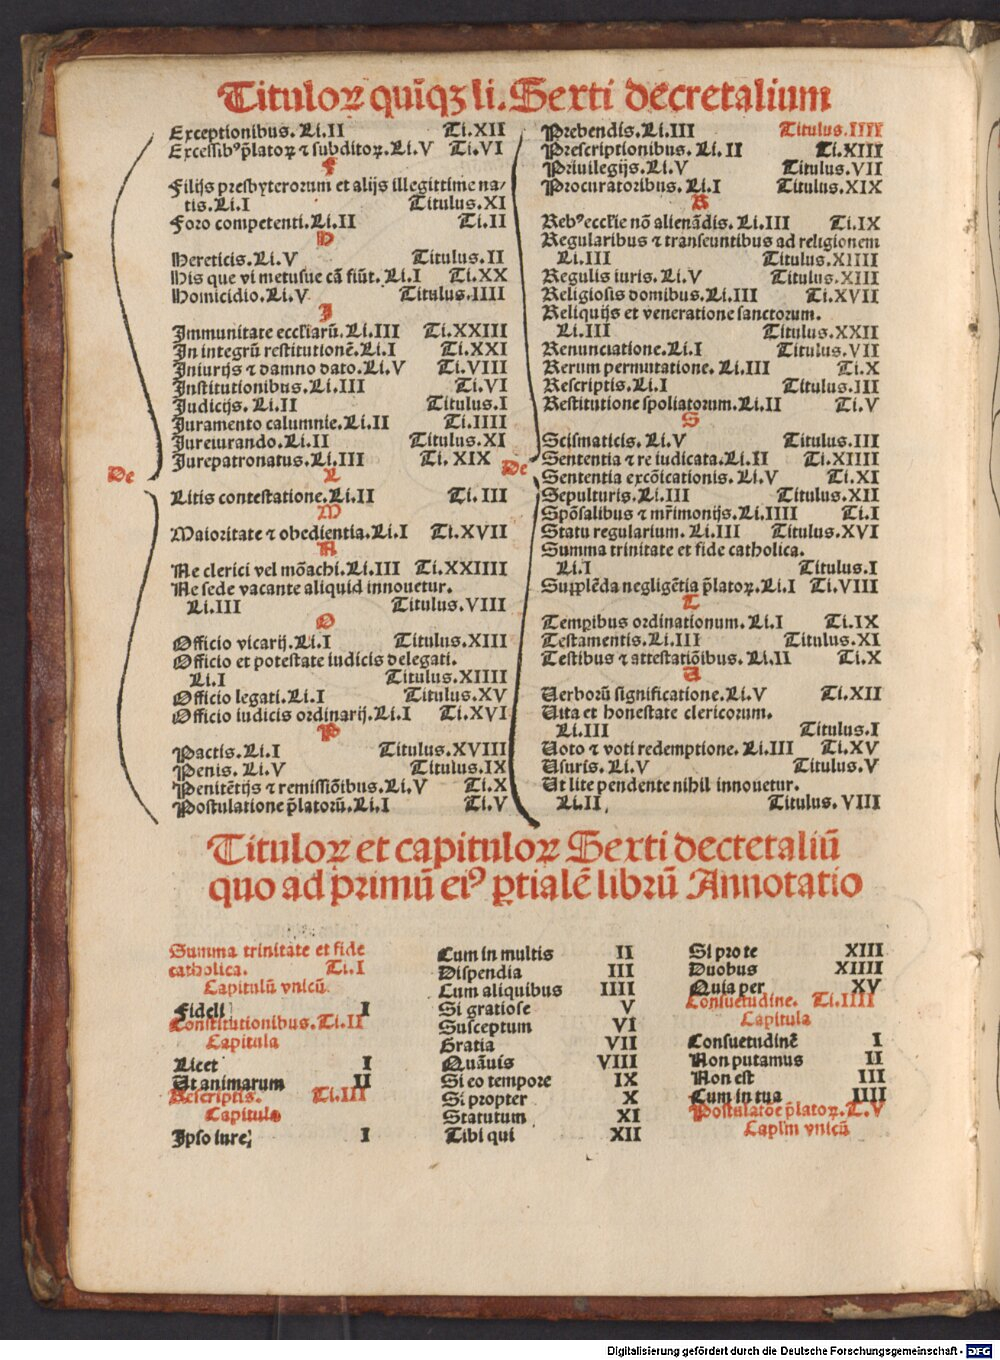 Titulorꝝ quiqꝫ li. Sexti decretalium
Exceptionibus. Li.II Ti.XII
Excessibꝰ p̃latoꝝ ⁊ subditoꝝ. Li.V Ti.VI
F
Filijs presbyterorum et alijs illegittime na/
tis. Li.I Titulus.XI
Foro competenti. Li.II Ti.II
H
Hereticis. Li.V Titulus.II
His que vi metusue cã fiũt. Li.I Ti.XX
Homicidio. Li.V Titulus.IIII
I
Immunitate eccl̃iarũ. Li.III Ti.XXIII
In integrũ restitutionẽ. Li.I Ti.XXI
Iniurijs ⁊ damno dato. Li.V Ti.VIII
Institutionibus. Li.III Ti.VI
Iudicijs. Li.II Titulus.I
Iuramento calumnie. Li.II Ti.IIII
Iureiurando. Li.II Titulus.XI
Iurepatronatus. Li.III Ti. XIX
De
L
Litis contestatione. Li.II Ti. III
M
Maioritate ⁊ obedientia. Li.I Ti.XVII
N
Ne clerici vel mõachi. Li.III Ti.XXIIII
Ne sede vacante aliquid innouetur.
Li.III Titulus.VIII
O
Officio vicarij. Li.I Titulus.XIII
Officio et potestate iudicis delegati.
Li.I Titulus.XIIII
Officio legati. Li.I Titulus.XV
Officio iudicis ordinarij. Li.I Ti.XVI
P
Pactis. Li.I Titulus.XVIII
Penis. Li.V Titulus.IX
Penitẽtijs ⁊ remissiõibus. Li.V Ti.X
Postulatione p̃latorũ. Li.I Ti.V
Prebendis. Li.III Titulus.IIII
Prescriptionibus. Li.II Ti.XIII
Priuilegijs. Li.V Titulus.VII
Procuratoribus. Li.I Titulus.XIX
R
Rebꝰ eccl̃ie nõ alienãdis. Li.III Ti.IX
Regularibus ⁊ transeuntibus ad religionem
Li.III Titulus.XIIII
Regulis iuris. Li.V Titulus.XIII
Religiosis domibus. Li.III Ti.XVII
Reliquijs et veneratione sanctorum.
Li.III Titulus.XXII
Renunciatione. Li.I Titulus.VII
Rerum permutatione. Li.III Ti.X
Rescriptis. Li.I Titulus.III
Restitutione spoliatorum. Li.II Ti.V
S
Scismaticis. Li.V Titulus.III
De
Sententia ⁊ re iudicata. Li.II Ti.XIIII
Sententia excõicationis. Li.V Ti.XI
Sepulturis. Li.III Titulus.XII
Spõsalibus ⁊ mr̃imonijs. Li.IIII Ti.I
Statu regularium. Li.III Titulus.XVI
Summa trinitate et fide catholica.
Li.I Titulus.I
Supplẽda negligẽtia p̃latoꝝ. Li.I Ti.VIII
T
Temp̱ibus ordinationum. Li.I Ti.IX
Testamentis. Li.III Titulus.XI
Testibus ⁊ attestatiõibus. Li.II Ti.X
U
Uerborũ significatione. Li.V Ti.XII
Uita et honestate clericorum.
Li.III Titulus.I
Uoto ⁊ voti redemptione. Li.III Ti.XV
Usuris. Li.V Titulus.V
Ut lite pendente nihil innouetur.
Li.II Titulus.VIII
Tituloꝝ et capituloꝝ Sexti dectetaliũ
quo ad primũ eiꝰ ꝑtialẽ librũ Annotatio
Summa trinitate et fide
catholica. Ti.I
Capitulũ vnicũ
Fideli I
Constitutionibus. Ti.II
Capitula
Licet I
Ut animarum II
Rescriptis. Ti.III
Capitula
Ipso iure; I
Cum in multis II
Dispendia III
Cum aliquibus IIII
Si gratiose V
Susceptum VI
Gratia VII
Quãuis VIII
Si eo tempore IX
Si propter X
Statutum XI
Tibi qui XII
Si pro te XIII
Duobus XIIII
Quia per XV
Consuetudine. Ti.IIII
Capitula
Consuetudinẽ I
Non putamus II
Non est III
Cum in tua IIII
Postulatõe p̃latoꝝ. T.V
Capl̃m vnicũ
Digitalisierung gefördert durch die Deutsche Forschungsgemeinschaft - DFG